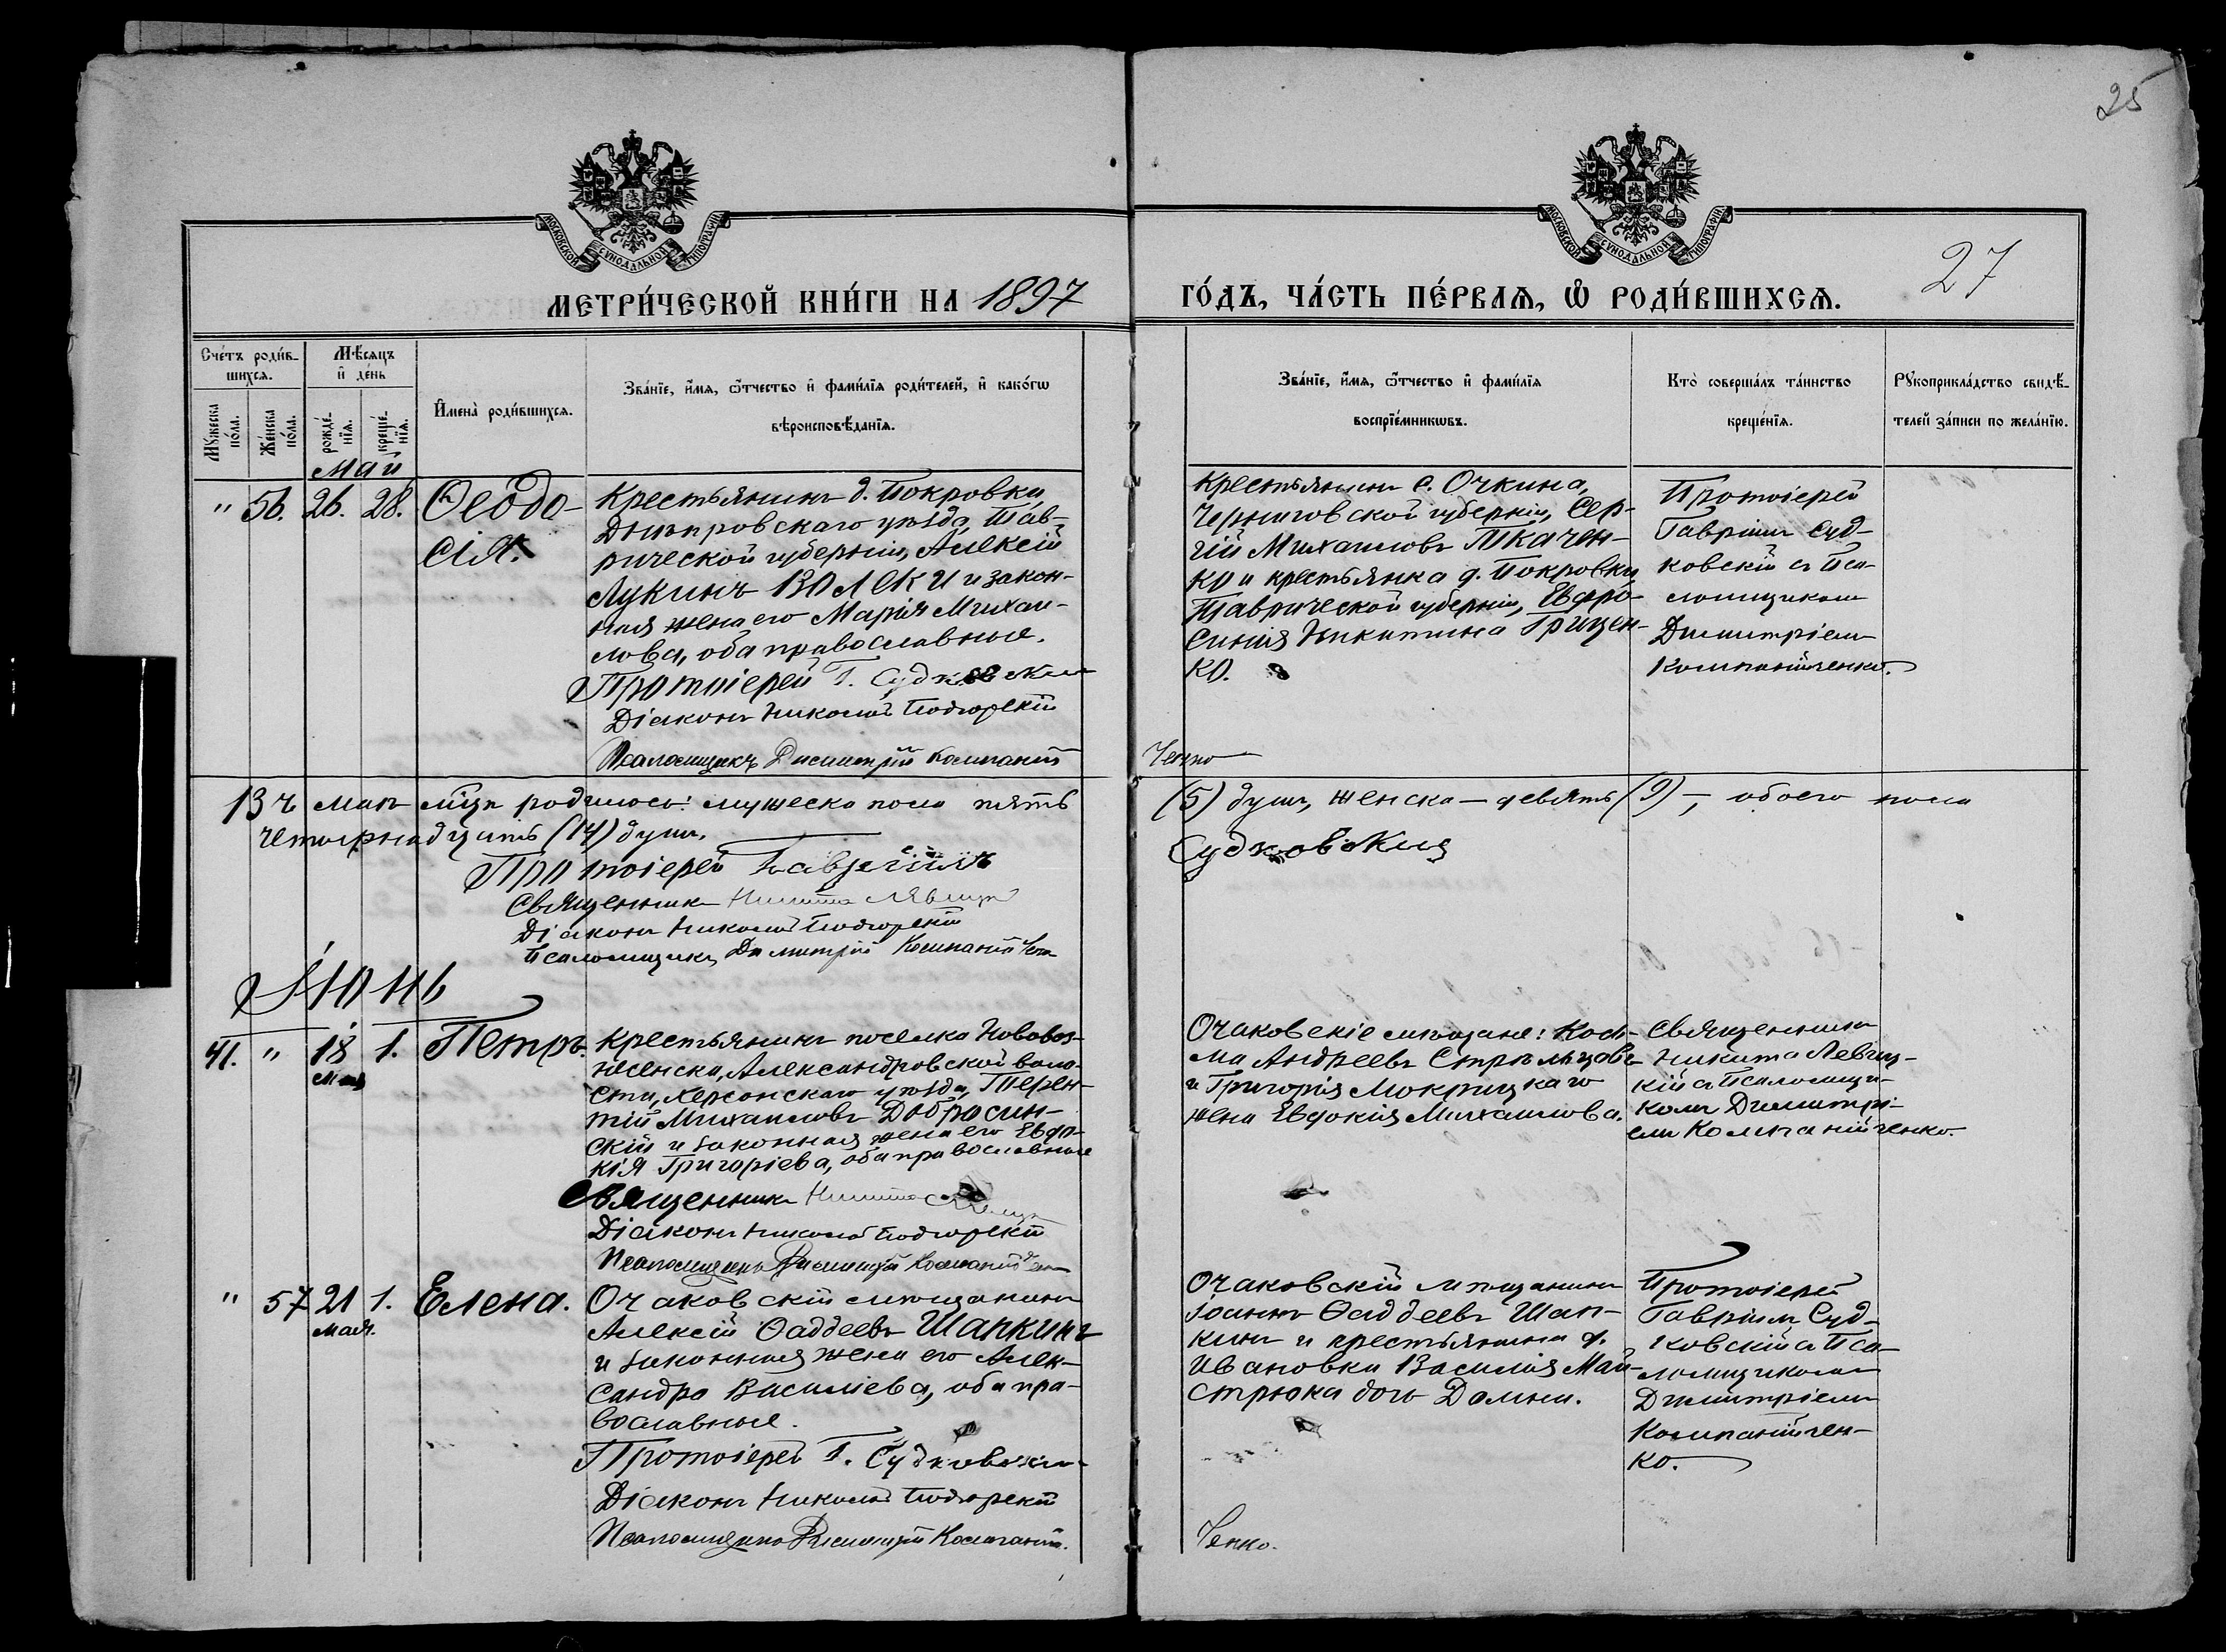 25
МОСКОВСКОЙ СУНОДАЛЬНОЙ ТИПОГРАФІИ
МОСКОВСКОЙ СУНОДАЛЬНОЙ ТИПОГРАФІИ
27
МЕТРИ́ЧЕСКОЙ КНИ́ГИ НА 1897
ГО́ДЪ, ЧА́СТЬ ПЕ́РВАЯ, Ѡ҆ РОДИ́ВШИХСЯ.
Сче́тъ роди́в-
шихся.
Мѣ́сяцъ
и҆ де́нь
Мꙋ́жеска
по́ла.
Же́нска
по́ла.
рожде́-
нїя.
креще́-
нїя.
И҆мена̀ роди́вшихся.
Зва́нїе, и҆́мя, ѻ҆́тчество и҆ фами́лїя роди́телей, и҆ како́гѡ
вѣроисповѣ́данїя.
Зва́нїе, и҆́мя, ѻ҆́тчество и҆ фами́лїя
воспрїе́мникѡвъ.
Кто̀ соверша́лъ та́инство
креще́нїя.
Рꙋкоприкла́дство свидѣ́-
телей за́писи по жела́нїю.
Май
" 56. 26. 28. Ѳеодо-
сія.
Крестьянинъ д. Покровки,
Днѣпровскаго уѣзда, Тав-
рической губерніи, Алексій
Лукинъ Волеки и закон-
ная жена его Марія Михаи-
лова, оба православные.
Протоіерей Г. Судковскій
Діаконъ Николай Подгорскій
Псаломщикъ Димитрій Компаній
ченко
Крестьянинъ с. Очкина,
Черниговской губерніи, Сер-
гій Михаиловъ Ткачен-
ко и крестьянка д. Покровки
Таврической губерніи, Евфро-
синія Никитина Грицен-
ко.
Протоіерей
Гавріилъ Суд-
ковскій съ Пса-
ломщикомъ
Димитріемъ
Компанійченко.
Въ маѣ м-цѣ родилось: мужеска пола пять
(5) душъ, женска — девять (9) —, обоего пола
четырнадцать (14) душъ.
Протоіерей Гавріилъ
Судковскій
Священникъ Никита Левиц
Діаконъ Николай Подгорскій
Псаломщикъ Димитрій Компанійчен
Іюнь
41. " 18 1. Петръ.
Мая
Крестьянинъ поселка Нововоз-
несенска, Александровской воло-
сти, Херсонскаго уѣзда, Терен-
тій Михаиловъ Добросин-
скій и законная жена его Евдо-
кія Григоріева, оба православные
Священникъ Никита
Діаконъ Николай Подгорскій
Псаломщикъ Димитрій Компанійчен
Очаковскіе мѣщане: Козь-
ма Андреевъ Стрѣльцовъ
и Григорія Мокрицкаго
жена Евдокія Михаилова.
Священникъ
Никита Левиц-
кій съ Псаломщи-
комъ Димитрі-
емъ Компанійченко.
" 57 21 1. Елена.
Мая.
Очаковскій мѣщанинъ
Алексій Ѳаддеевъ Шапкинъ
и законная жена его Алек-
сандра Василіева, оба пра-
вославные.
Протоіерей Г. Судковскій
Діаконъ Николай Подгорскій
Псаломщикъ Димитрій Компаній.
ченко.
Очаковскій мѣщанинъ
Іоаннъ Ѳаддеевъ Шап-
кинъ и крестьянина д.
Ивановки Василія Май-
стрюка дочь Домна.
Протоіерей
Гавріилъ Суд-
ковскій съ Пса-
ломщикомъ
Димитріемъ
Компанійчен-
ко.